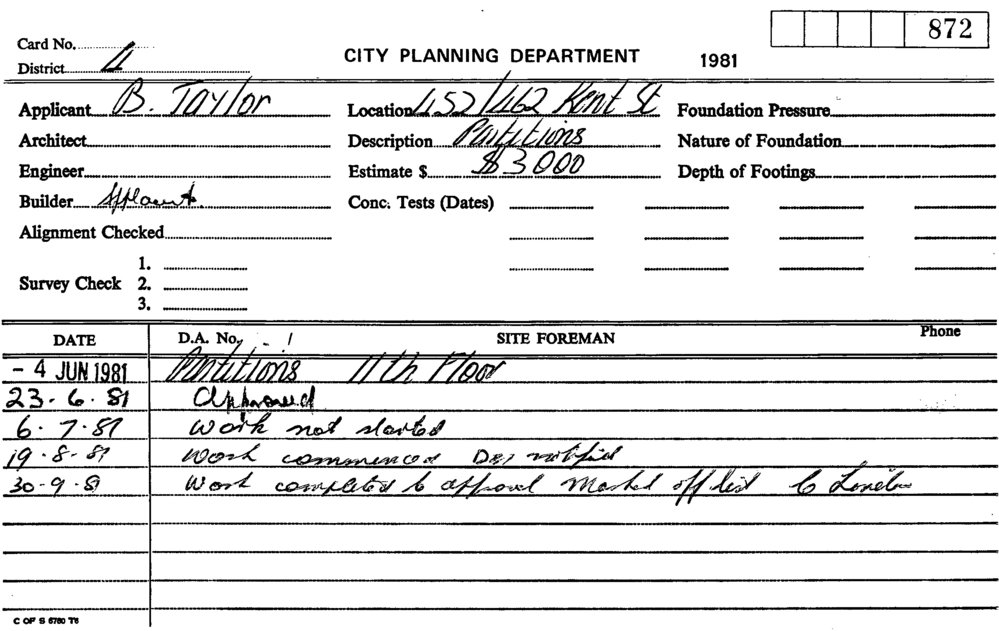 872
Card No.
CITY PLANNING DEPARTMENT 1981
District 4
Applicant B. Taylor Location 452/462 Kent St Foundation Pressure
Architect Description Partitions Nature of Foundation
Engineer Estimate $ $3000 Depth of Footings
Builder Applicant. Conc. Tests (Dates)
Alignment Checked
1.
Survey Check 2.
3.
DATE D.A. No. SITE FOREMAN Phone
- 4 JUN 1981 Partitions 11th Floor
23.6.81 Approved
6.7.81 Work not started
19.8.81 Work commenced notified
30.9.81 Work completed to approval Marked off list
C OF S 6780 T6